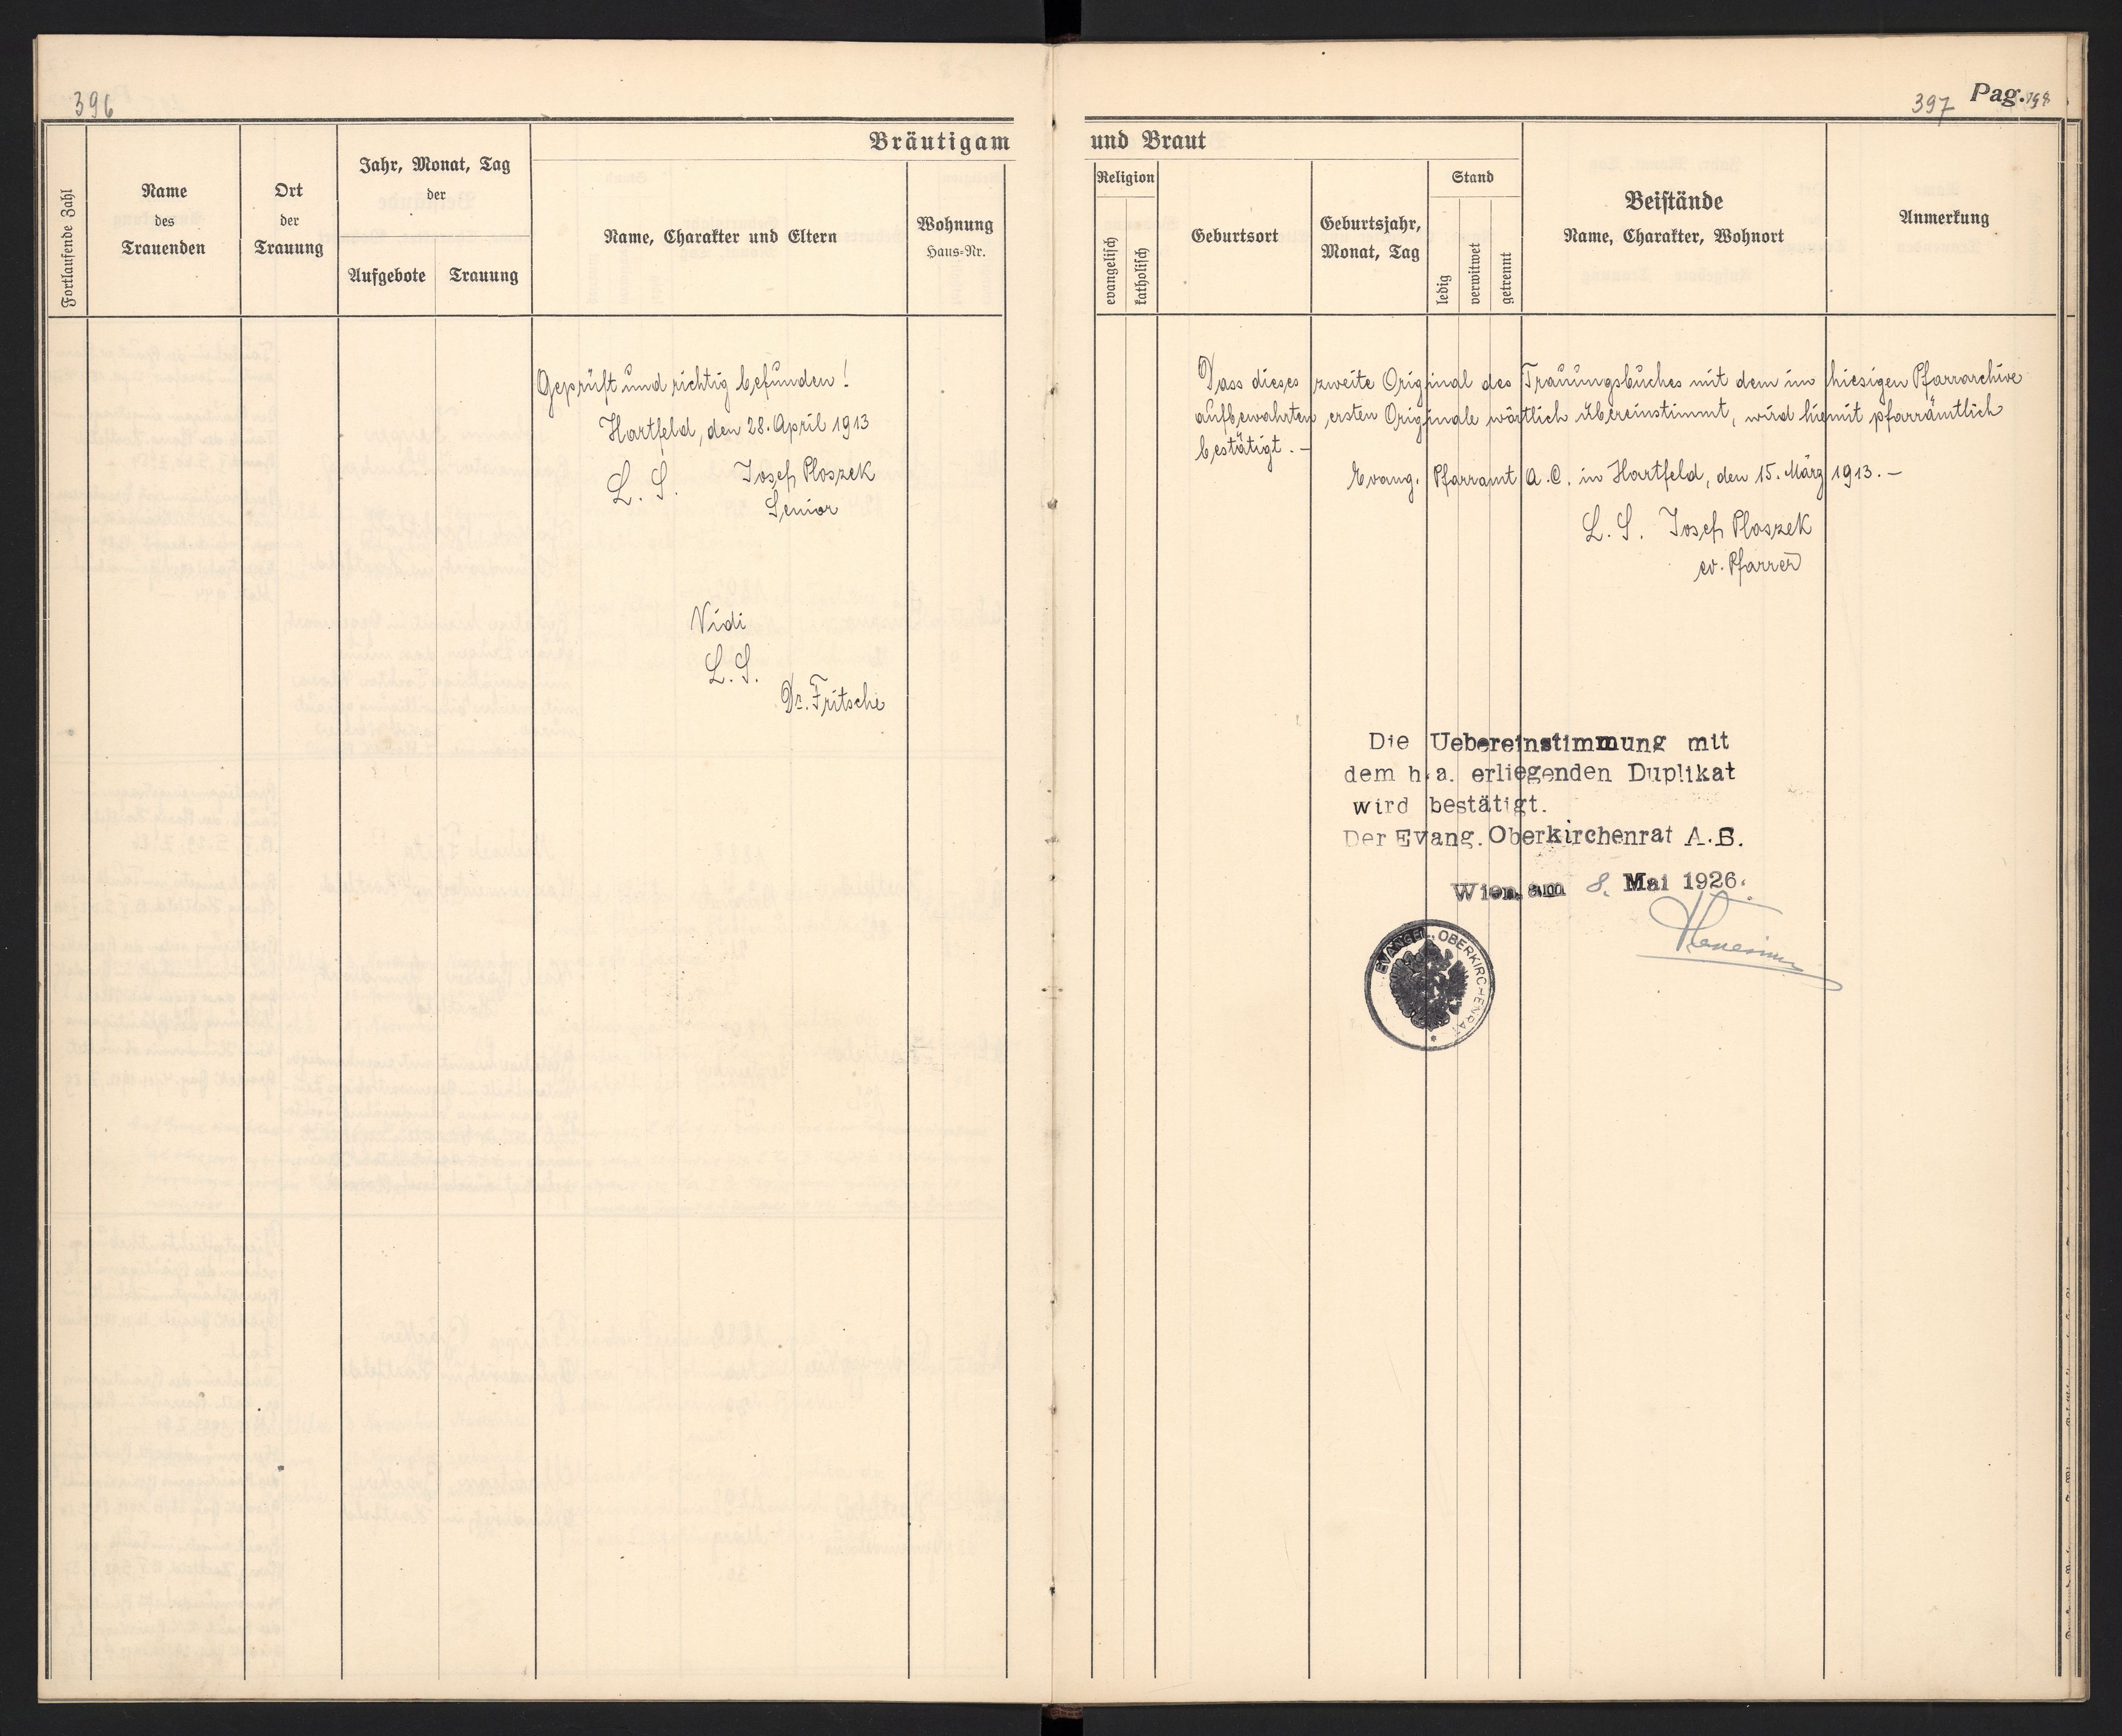 396
Bräutigam
Fortlaufende Zahl
Name
des
Trauenden
Ort
der
Trauung
Jahr, Monat, Tag
der
Aufgebote
Trauung
Name, Charakter und Eltern
Wohnung
Haus-Nr.
Geprüft und richtig befunden!
Hartfeld, den 28. April 1913
L. S. Josef Ploszek
Senior
Vidi
L. S.
Dr. Fritsche
397 Pag. 198
und Braut
Religion
evangelisch
katholisch
Geburtsort
Geburtsjahr,
Monat, Tag
Stand
ledig
verwitwet
getrennt
Beistände
Name, Charakter, Wohnort
Anmerkung
Dass dieses zweite Original des Trauungsbuches mit dem im hiesigen Pfarrarchive
aufbewahrten ersten Originale wörtlich übereinstimmt, wird hiemit pfarrämtlich
bestätigt. –
Evang. Pfarramt A. C. in Hartfeld, den 15. März 1913. –
L. S. Josef Ploszek
ev. Pfarrer
Die Uebereinstimmung mit
dem h.a. erliegenden Duplikat
wird bestätigt.
Der Evang. Oberkirchenrat A.B.
Wien, am 8. Mai 1926.
EVANGEL. OBERKIRCHENRAT